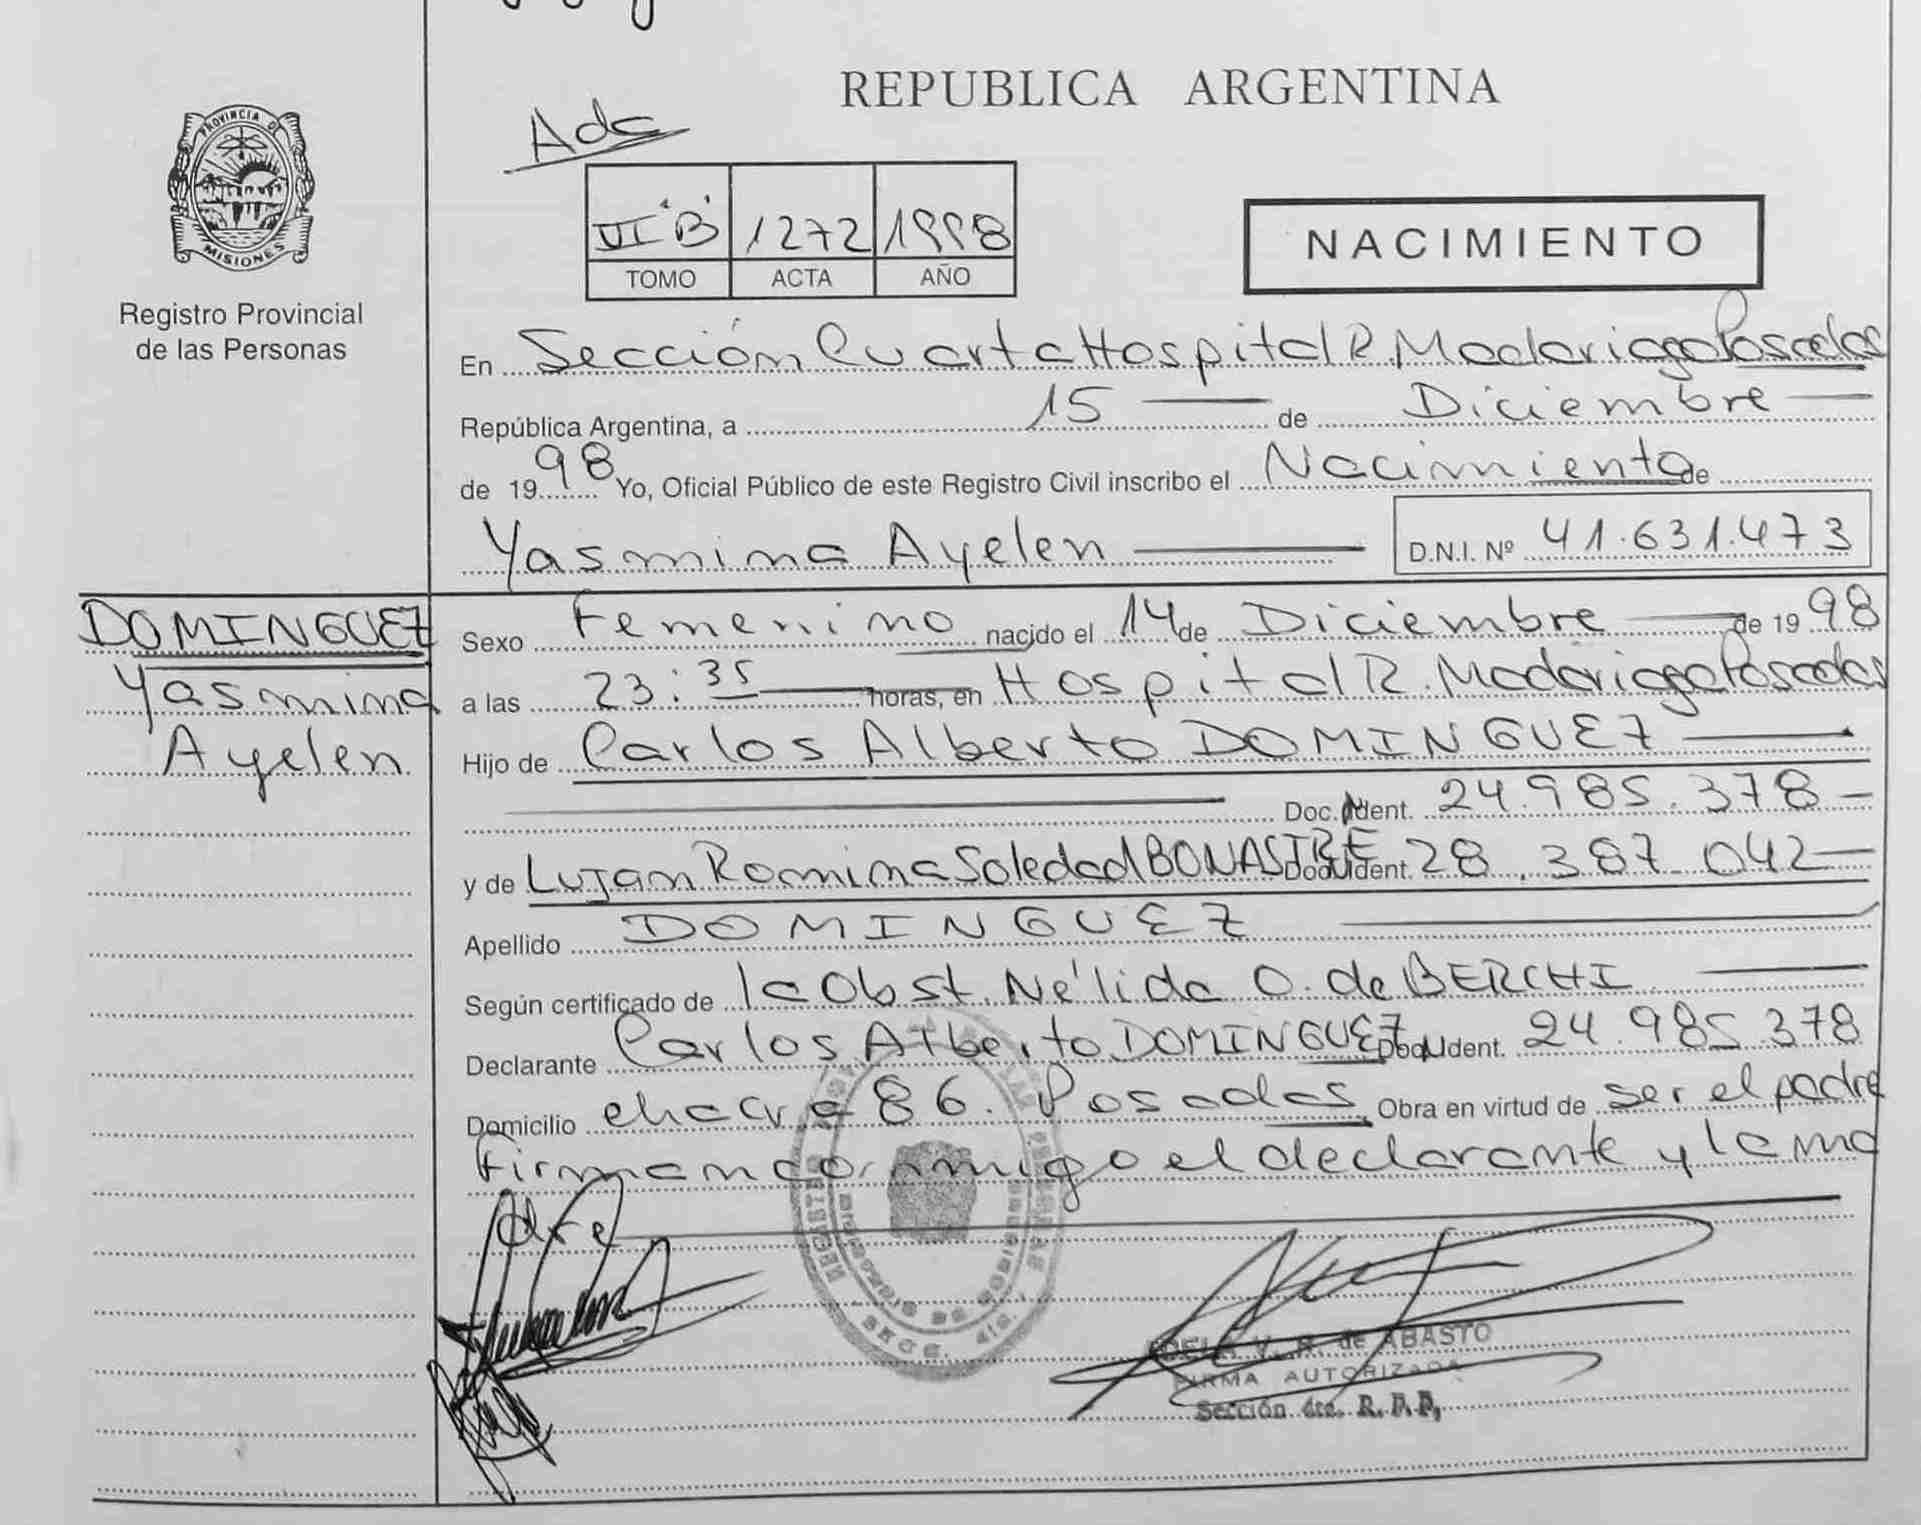 REPUBLICA ARGENTINA
PROVINCIA DE
MISIONES
Registro Provincial
de las Personas
Adc
VI "B" 1272 1998
TOMO ACTA AÑO
NACIMIENTO
En Sección Cuarta Hospital R. Madariaga Posadas
República Argentina, a 15 de Diciembre
de 1998 Yo, Oficial Público de este Registro Civil inscribo el Nacimiento de
Yasmina Ayelen D.N.I. Nº 41.631.473
DOMINGUEZ
Yasmina
Ayelen
Sexo Femenino nacido el 14 de Diciembre de 1998
a las 23:35 horas, en Hospital R. Madariaga Posadas
Hijo de Carlos Alberto DOMINGUEZ
Doc. Ident. 24.985.378
y de Lujan Romina Soledad BONASTRE Doc. Ident. 28.387.042
Apellido DOMINGUEZ
Según certificado de la Obst. Nélida O. de BERCHI
Declarante Carlos Alberto DOMINGUEZ Doc. Ident. 24.985.378
Domicilio chacra 86. Posadas, Obra en virtud de ser el padre
Firmando conmigo el declarante y la ma
dre
V. R. de ABASTO
FIRMA AUTORIZADA
Sección 4ta. R. P. P.